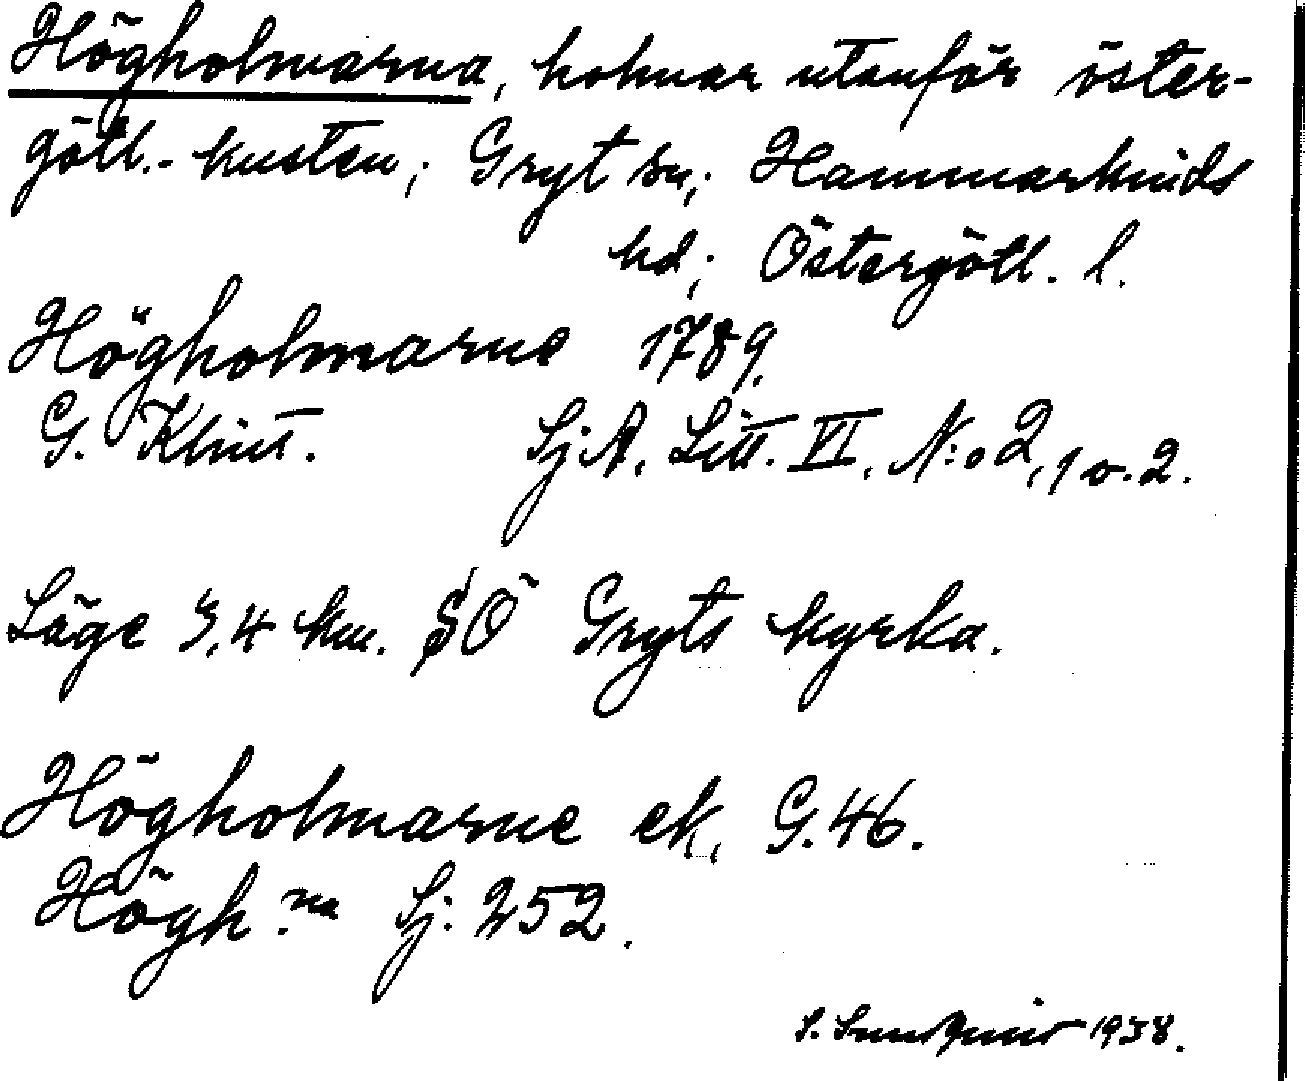 Högholmarna, holmar utanför öster-
götl.-kusten; Gryt sn; Hammarkinds
hd; Östergötl. l.
Högholmarne 1789.
G. Klint. Sj.A. Litt. VI, N:o 2, 1 o. 2.
Läge 3,4 km. SÖ Gryts kyrka.
Högholmarne ek, G.46.
Högh.na Sj. 252.
S. 1938.